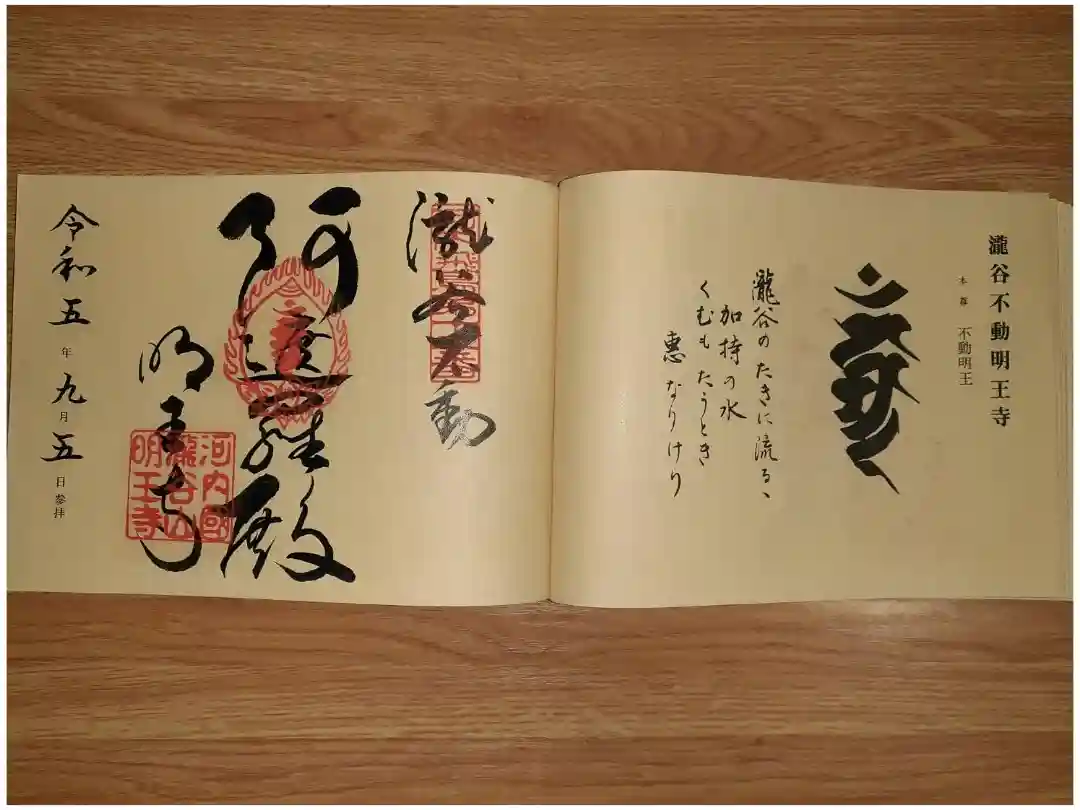 瀧谷不動明王寺
本尊 不動明王
瀧谷の たきに流るゝ
加持の水
くむも たうとき
惠 なりけり
瀧谷不動
阿遮羅殿
明王寺
河内國
瀧谷山
明王寺
令和五年九月五日參拝